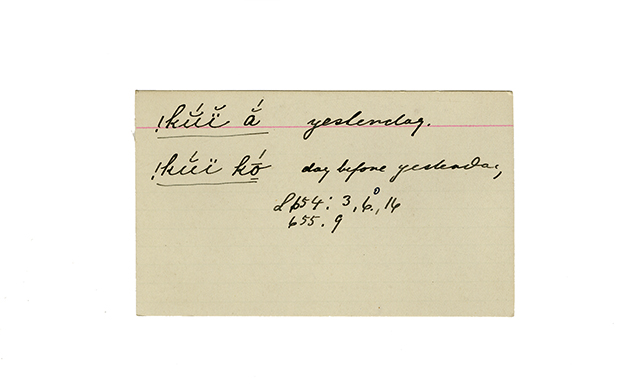 !kŭ́ï ắ yesterday.
!kŭ́ï kṓ̱ day before yesterday,
L 654: 3, 6., 16
655. 9